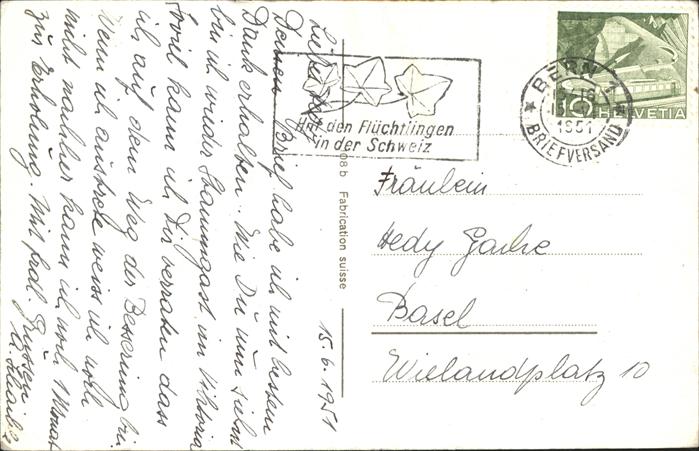 15.6.1951
Liebe Hedy,
Deinen Brief habe ich mit bestem
Dank erhalten. Wie Du nun siehst
bin ich wieder Stammgast im Viktoria
Soviel kann ich Dir verraten dass
ich auf dem Weg der Besserung bin
Wenn ich austrete weiss ich noch
nicht nachher kann ich noch Monat
zur Erholung. Mit frdl. Grüssen
08 b Fabrication suisse
Helft den Flüchtlingen
in der Schweiz
BERN 1
1951
BRIEFVERSAND
10 HELVETIA
Fräulein
Hedy
Basel
Wielandplatz 10